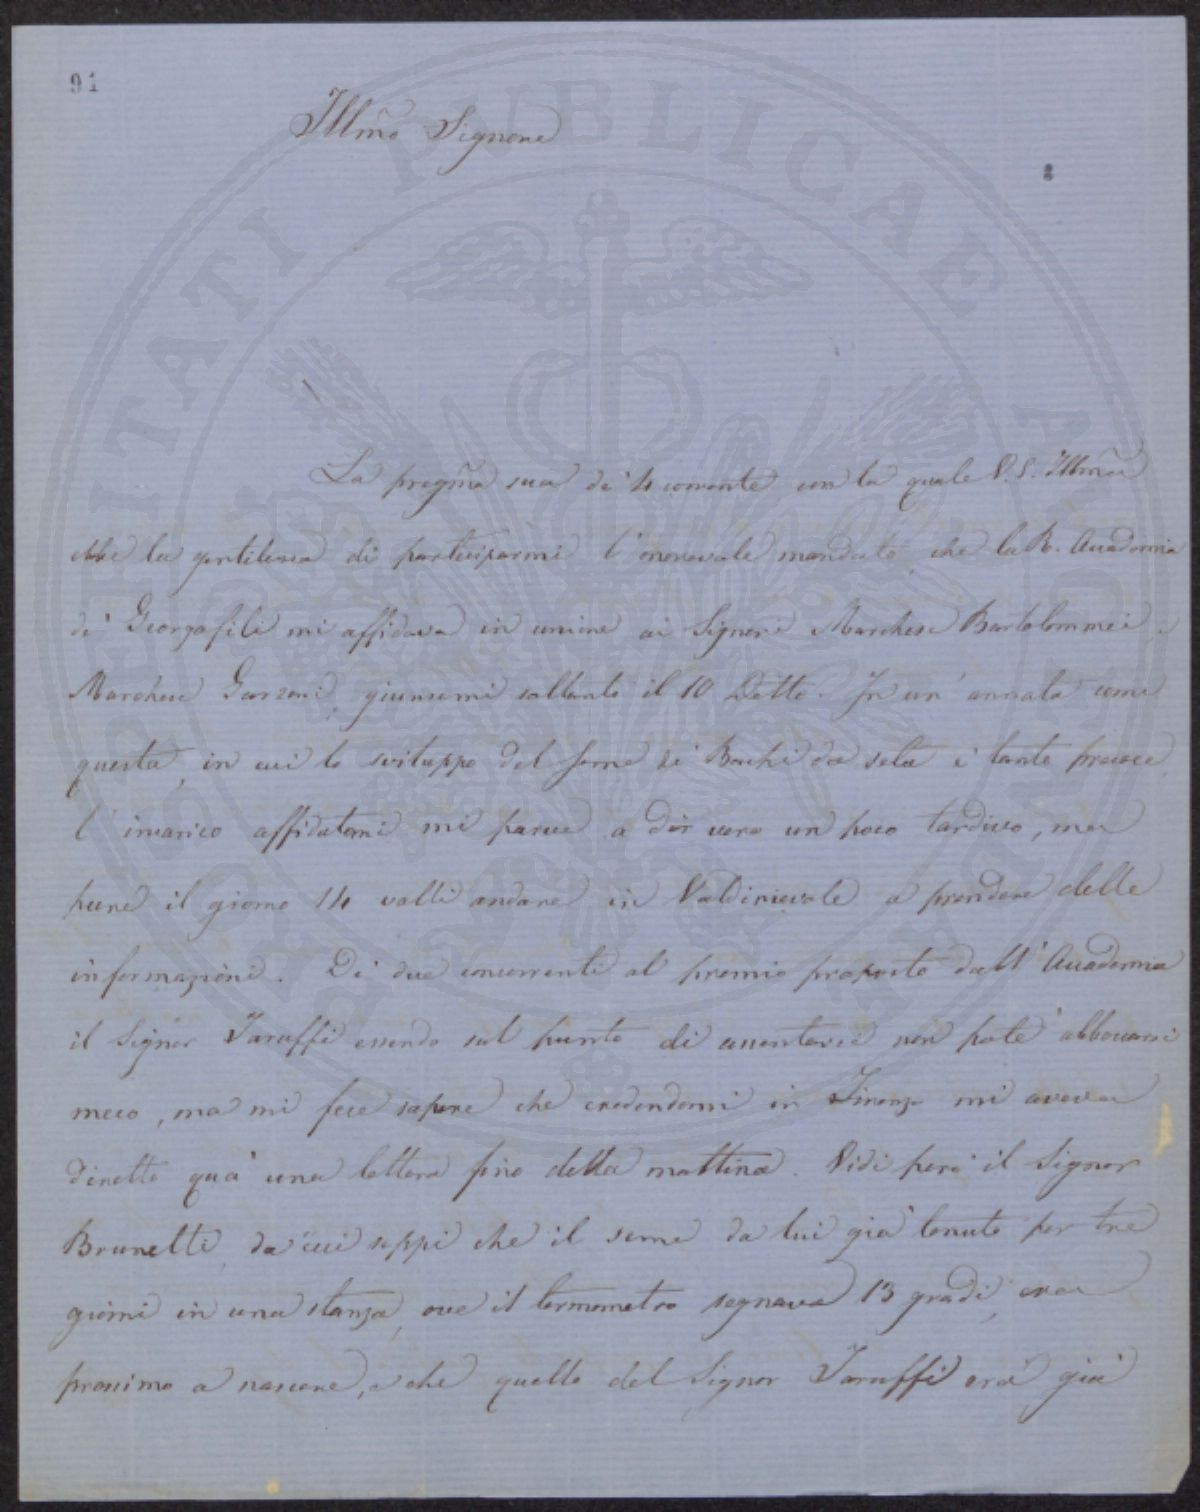 91
Illmo Signore
La pregma sua de' 4 corrente con la quale V. S. Illma
ebbe la gentilezza di parteciparmi l'onorevole mandato, che la R. Accademia
de' Georgofili mi affidava in unione ai Signori Marchese Bartolommei,
Marchese Garzoni, giunsemi soltanto il 10 Detto. In un'annata come
questa, in cui lo sviluppo del seme de' Bachi da seta è tanto precoce,
l'incarico affidatomi mi parve a dir vero un poco tardivo, ma
pure il giorno 14 volli andare in Valdinievole a prendere delle
informazioni. Di due concorrenti al premio proposto dall'Accademia
il Signor Taruffi essendo sul punto di assentarsi non poté abboccarsi
meco, ma mi fece sapere che credendomi in Firenze mi aveva
diretto quà una lettera fino della mattina. Vidi però il Signor
Brunetti, da cui seppi che il seme da lui già tenuto per tre
giorni in una stanza, ove il termometro segnava 13 gradi, era
prossimo a nascere, e che quello del Signor Taruffi era già
SPERITATI PUBLICAE